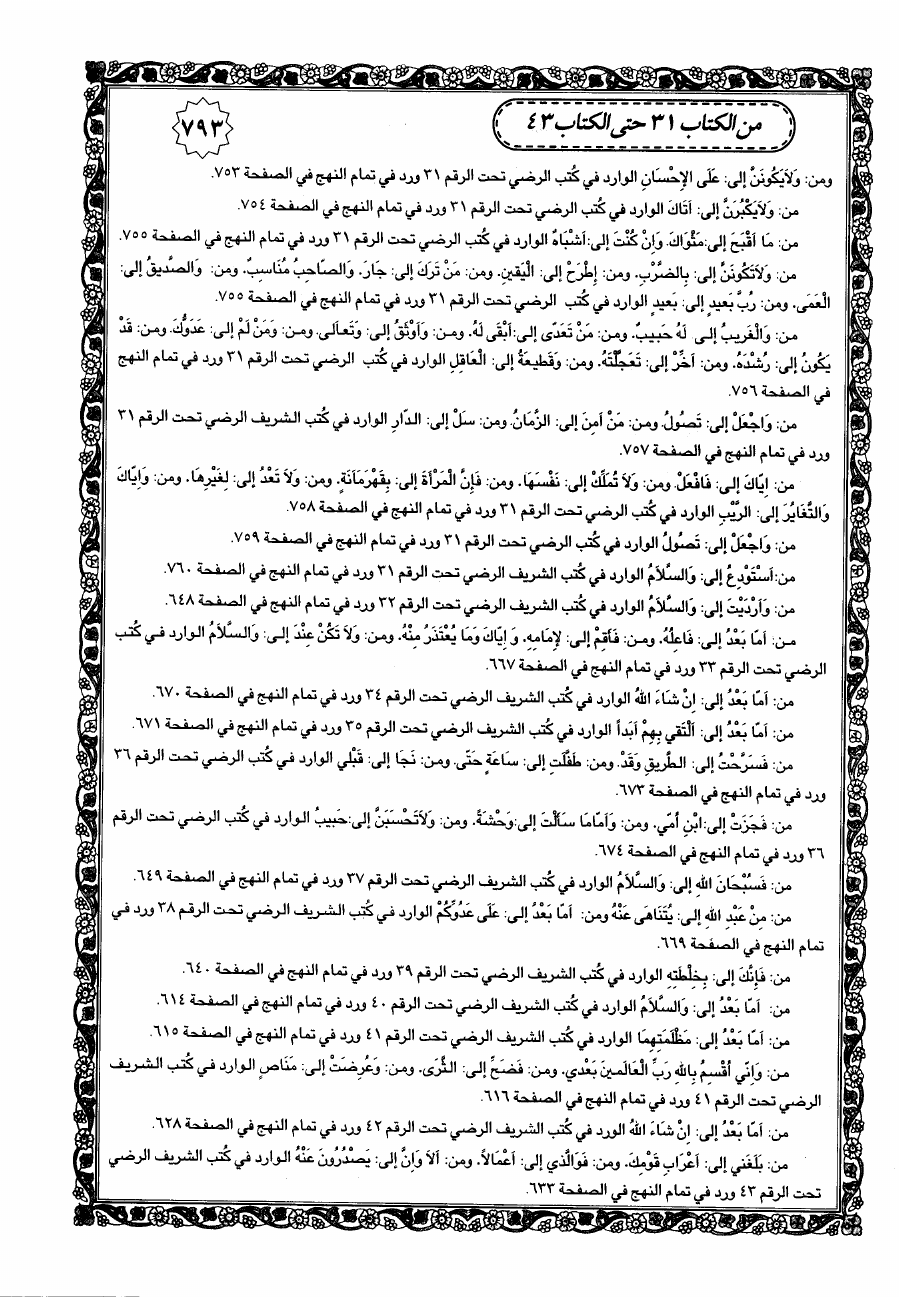 من الكتاب ٣١ حتى الكتاب ٤٣
٧٩٣
ومن: وَلاَيَكُونَنَّ إلى: عَلَى الإِحْسَانِ الوارد في كُتب الرضي تحت الرقم ٣١ ورد في تمام النهج في الصفحة ٧٥٣.
من: وَلاَيَكْبُرَنَّ إلى: أَتَاكَ الوارد في كُتب الرضي تحت الرقم ٣١ ورد في تمام النهج في الصفحة ٧٥٤.
من: مَا أَقْبَحَ إلى:مَثْوَاكَ. وَإِنْ كُنْتَ إلى:أَشْبَاهٌ الوارد في كُتب الرضي تحت الرقم ٣١ ورد في تمام النهج في الصفحة ٧٥٥.
من: وَلاَتَكُونَنَّ إلى: بِالضَّرْبِ. ومن: إِطْرَحْ إلى: الْيَقينِ. ومن: مَنْ تَرَكَ إلى: جَارَ. وَالصَّاحِبُ مُنَاسِبٌ. ومن: وَالصَّديقُ إلى:
الْعَمَى. ومن: رُبَّ بَعيدٍ إلى: بَعيدٍ الوارد في كُتب الرضي تحت الرقم ٣١ ورد في تمام النهج في الصفحة ٧٥٥.
من: وَالْغَريبُ إلى لَهُ حَبيبٌ. ومن: مَنْ تَعَدَّى إلى:أَبْقَى لَهُ. ومن: وَأَوْثَقُ إلى: وَتَعَالى. ومن: وَمَنْ لَمْ إلى: عَدُوُّكَ. ومن: قَدْ
يَكُونُ إلى: رُشْدَهُ. ومن: أَخِّرْ إلى: تَعَجَّلْتَهُ. ومن: وَقَطيعَةُ إلى: الْعَاقِلِ الوارد في كُتب الرضي تحت الرقم ٣١ ورد في تمام النهج
في الصفحة ٧٥٦.
من: وَاجْعَلْ إلى: تَصُولُ. ومن: مَنْ أَمِنَ إلى: الزَّمَانُ. ومن: سَلْ إلى: الدَّارِ الوارد في كُتب الشريف الرضي تحت الرقم ٣١
ورد في تمام النهج في الصفحة ٧٥٧.
من: إِيَّاكَ إلى: فَافْعَلْ. ومن: وَلاَ تُمَلِّكْ إلى: نَفْسَهَا. ومن: فَإِنَّ الْمَرْأَةَ إلى: بِقَهْرَمَانَةٍ. ومن: وَلاَ تَعْدُ إلى: لِغَيْرِهَا. ومن: وَإِيَّاكَ
وَالتَّغَايُرَ إلى: الرَّيْبِ الوارد في كُتب الرضي تحت الرقم ٣١ ورد في تمام النهج في الصفحة ٧٥٨.
من: وَاجْعَلْ إلى: تَصُولُ الوارد في كُتب الرضي تحت الرقم ٣١ ورد في تمام النهج في الصفحة ٧٥٩.
من:أَسْتَوْدِعُ إلى: وَالسَّلاَمُ الوارد في كُتب الشريف الرضي تحت الرقم ٣١ ورد في تمام النهج في الصفحة ٧٦٠.
من: وَأَرْدَيْتَ إلى: وَالسَّلاَمُ الوارد في كُتب الشريف الرضي تحت الرقم ٣٢ ورد في تمام النهج في الصفحة ٦٤٨.
من: أَمَّا بَعْدُ إلى: فَاعِلُهُ. ومن: فَأَقِمْ إلى: لإِمَامِهِ. وَ إِيَّاكَ وَمَا يُعْتَذَرُ مِنْهُ. ومن: وَلاَ تَكُنْ عِنْدَ إلى: وَالسَّلاَمُ الوارد في كُتب
الرضي تحت الرقم ٣٣ ورد في تمام النهج في الصفحة ٦٦٧.
من: أَمَّا بَعْدُ إلى: إِنْ شَاءَ اللهُ الوارد في كُتب الشريف الرضي تحت الرقم ٣٤ ورد في تمام النهج في الصفحة ٦٧٠.
من: أَمَّا بَعْدُ إلى: أَلْتَقي بِهِمْ أَبَداً الوارد في كُتب الشريف الرضي تحت الرقم ٣٥ ورد في تمام النهج في الصفحة ٦٧١.
من: فَسَرَّحْتُ إلى: الطَّريقِ وَقَدْ. ومن: طَفَّلَتِ إلى: سَاعَةٍ حَتَّى. ومن: نَجَا إلى: قَبْلي الوارد في كُتب الرضي تحت الرقم ٣٦
ورد في تمام النهج في الصفحة ٦٧٣.
من: فَجَزَتْ إلى:ابْنِ أُمّي. ومن: وَأَمَّامَا سَأَلْتَ إلى:وَحْشَةً. ومن: وَلاَتَحْسَبَنَّ إلى:حَبيبُ الوارد في كُتب الرضي تحت الرقم
٣٦ ورد في تمام النهج في الصفحة ٦٧٤.
من: فَسُبْحَانَ اللهِ إلى: وَالسَّلاَمُ الوارد في كُتب الشريف الرضي تحت الرقم ٣٧ ورد في تمام النهج في الصفحة ٦٤٩.
من: مِنْ عَبْدِ اللهِ إلى: يُتَنَاهَى عَنْهُ ومن: أَمَّا بَعْدُ إلى: عَلَى عَدُوِّكُمْ الوارد في كُتب الشريف الرضي تحت الرقم ٣٨ ورد في
تمام النهج في الصفحة ٦٦٩.
من: فَإِنَّكَ إلى: بِخِلْطَتِهِ الوارد في كُتب الشريف الرضي تحت الرقم ٣٩ ورد في تمام النهج في الصفحة ٦٤٠.
من: أَمَّا بَعْدُ إلى: وَالسَّلاَمُ الوارد في كُتب الشريف الرضي تحت الرقم ٤٠ ورد في تمام النهج في الصفحة ٦١٤.
من: أَمَّا بَعْدُ إلى: مَظْلَمَتِهِمَا الوارد في كُتب الشريف الرضي تحت الرقم ٤١ ورد في تمام النهج في الصفحة ٦١٥.
من: وَإِنّي أُقْسِمُ بِاللهِ رَبِّ الْعَالَمينَ بَعْدي. ومن: فَضَحِّ إلى: الثَّرَى. ومن: وَعُرِضَتْ إلى: مَنَاصٍ الوارد في كُتب الشريف
الرضي تحت الرقم ٤١ ورد في تمام النهج في الصفحة ٦١٦.
من: أَمَّا بَعْدُ إلى: إِنْ شَاءَ اللهُ الورد في كُتب الشريف الرضي تحت الرقم ٤٢ ورد في تمام النهج في الصفحة ٦٢٨.
من: بَلَغَني إلى: أَعْرَابِ قَوْمِكَ. ومن: فَوَالَّذي إلى: أَعْمَالاً. ومن: أَلاَ وَإِنَّ إلى: يَصْدُرُونَ عَنْهُ الوارد في كُتب الشريف الرضي
تحت الرقم ٤٣ ورد في تمام النهج في الصفحة ٦٣٣.